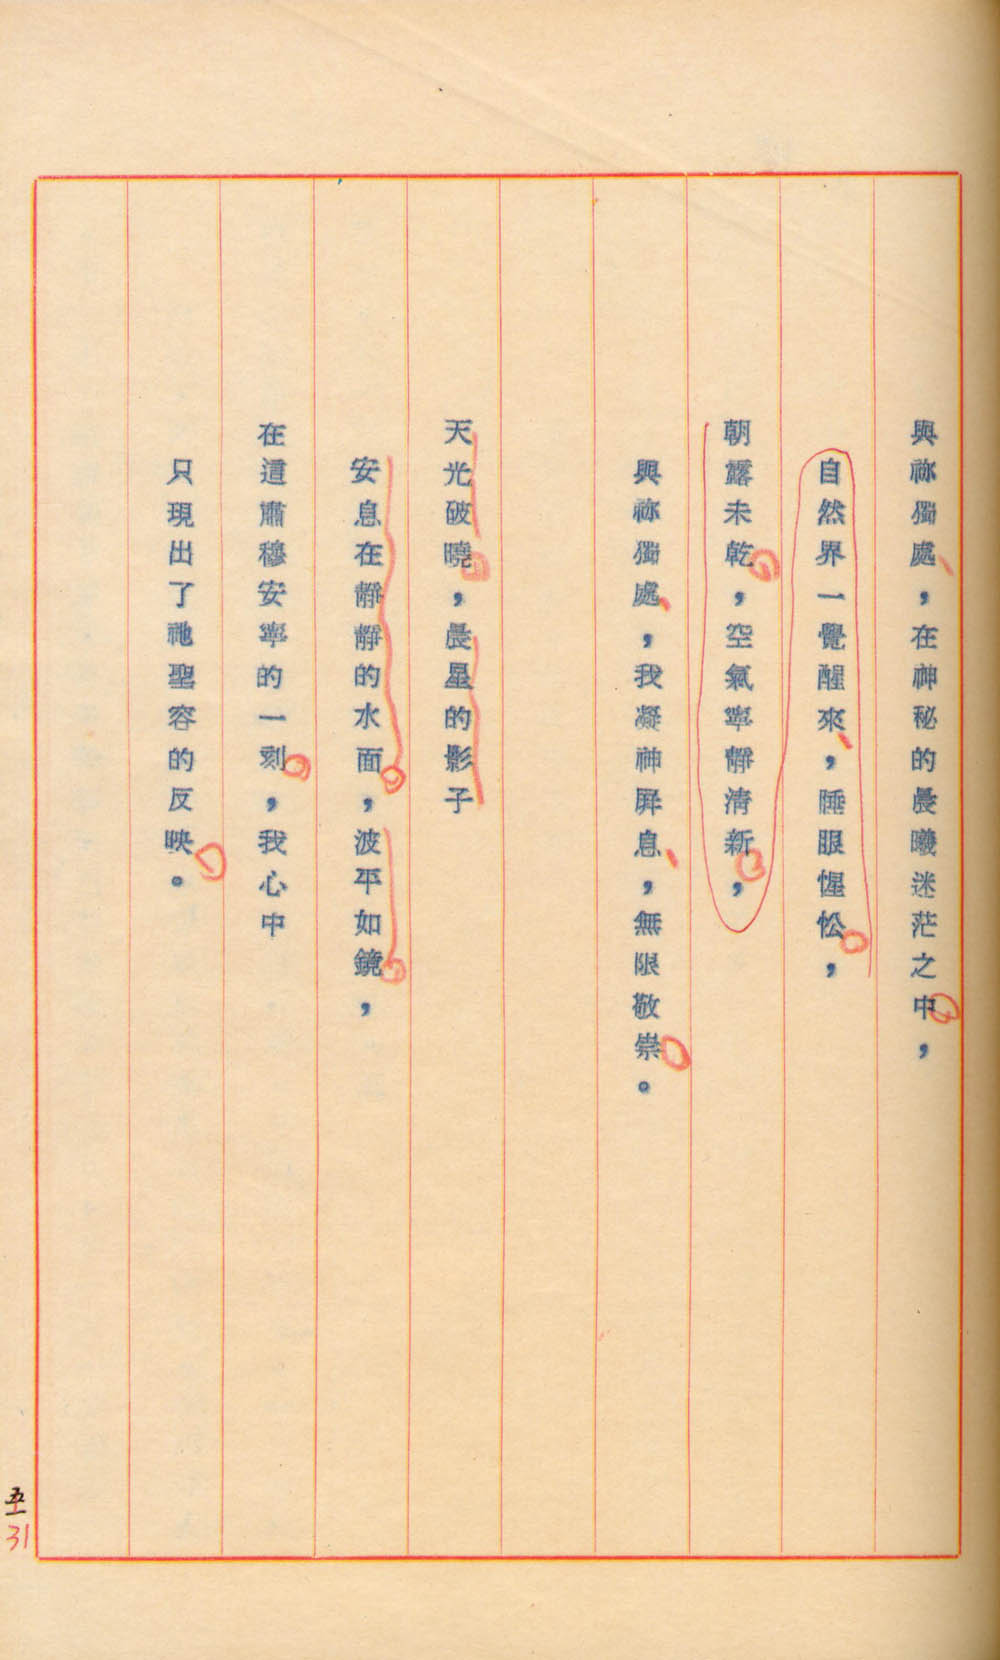 與祢獨處，在神秘的晨曦迷茫之中，
自然界一覺醒來，睡眼惺忪，
朝露未乾，空氣寧靜清新，
與祢獨處，我凝神屏息，無限敬崇。
天光破曉，晨星的影子
安息在靜靜的水面，波平如鏡，
在這肅穆安寧的一刻，我心中
只現出了祂聖容的反映。
五
31